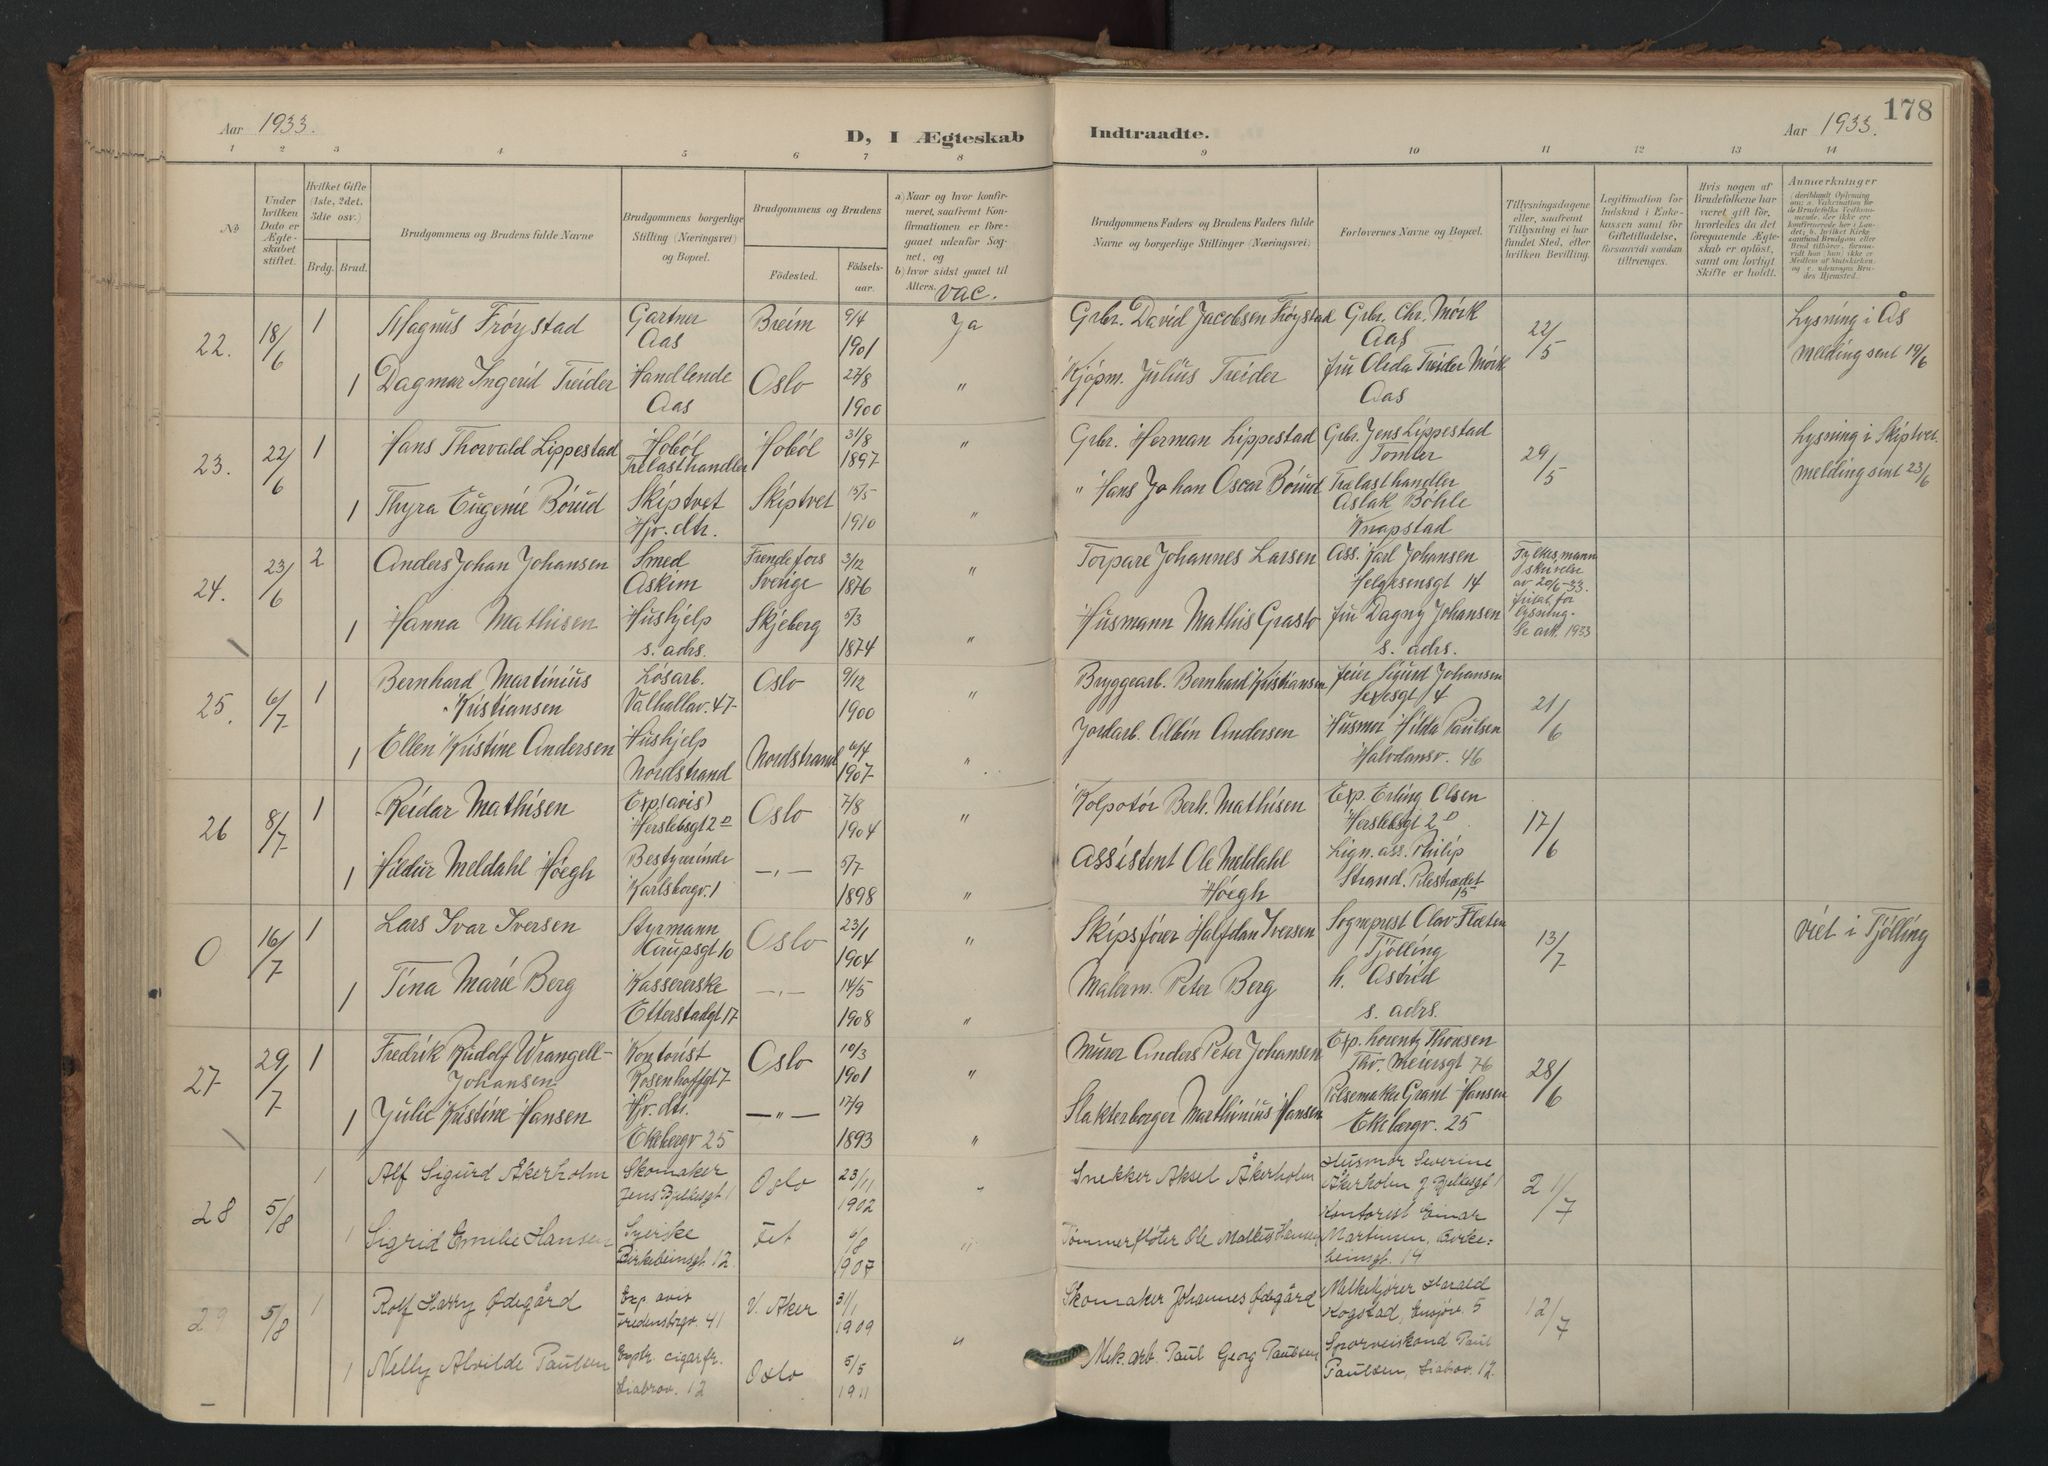 178
Aar 1933.
D, I Ægteskab Indtraadte.
Aar 1933.
1 2 3 4 5 6 7 8 9 10 11 12 13 14
No
Under hvilken Dato er Ægteskabet stiftet.
Hvilket Gifte (1ste, 2det, 3die osv.)
Brdg. Brud.
Brudgommens og Brudens fulde Navne
Brudgommens borgerlige Stilling (Næringsvei) og Bopæl.
Brudgommens og Brudens
Fødested.
Fødselsaar.
a) Naar og hvor konfirmeret, saafremt Konfirmationen er foregaaet udenfor Sognet, og
b) hvor sidst gaaet til Alters.
vac.
Brudgommens Faders og Brudens Faders fulde Navne og borgerlige Stillinger (Næringsvei)
Forlovernes Navne og Bopæl.
Tillysningsdagene eller, saafremt Tillysning ei har fundet Sted, efter hvilken Bevilling.
Legitimation for Indskud i Enkekassen samt for Giftetilladelse, forsaavidt saadan tiltrænges.
Hvis nogen af Brudefolkene har været gift før, hvorledes da det foregaaende Ægteskab er opløst, samt om lovligt Skifte er holdt.
Anmærkninger
22. 18/6 1 Magnus Frøystad Gartner Aas Breim 9/4 1901 Ja Grbr. David Jacobsen Frøystad Grbr. Chr. Mørk Aas 22/5 Lysning i Ås melding sent 19/6
1 Dagmar Ingerid Treider Handlende Aas Oslo 27/8 1900 " Kjøpm. Julius Treider fru Olida Treider Mørk Aas
23. 22/6 1 Hans Thorvald Lippestad Hobøl Trelasthandler Hobøl 31/8 1897 " Grbr. Herman Lippestad Grbr. Jens Lippestad Tomter 29/5 Lysning i Skiptvet. melding sent 23/6
1 Thyra Eugenie Børud Skiptvet Hjv. dtr. Skiptvet 15/5 1910 " " Hans Johan Oscar Børud Trelasthandler Aslak Bøhle Knapstad
24. 23/6 2 Anders Johan Johansen Smed Askim Frendefors Sverige 3/12 1876 " Torpare Johannes Larsen Ass. Karl Johansen Helgesensgt 14 Fylkesmann skrivelse av 20/6-33. fritat for lysning. Se ark. 1933
1 Hanna Mathisen Hushjelp s. adrs. Skjeberg 5/3 1874 " Husmann Mathis Grasto fru Dagny Johansen s. adrs.
25. 6/7 1 Bernhard Martinius Kristiansen Løsarb. Valhallav. 47 Oslo 9/12 1900 " Bryggearb. Bernhard Kristiansen feier Sigurd Johansen Sexesgt 4 21/6
1 Ellen Kristine Andersen Hushjelp Nordstrand Nordstrand 6/4 1907 " Jordarb. Albin Andersen Husmor Hilda Paulsen Halvdansv. 46
26 8/7 1 Reidar Mathisen Exp (avis) Herslebsgt 2 D Oslo 7/8 1904 " Kolpotør Berh. Mathisen Exp. Erling Olsen Herslebsgt 2 D 17/6
1 Hildur Meldahl Høegh Bestyrerinde Karlsborgv. 1 —„— 5/7 1898 " Assistent Ole Meldahl Høegh Lign. ass. Philip Strand. Pilestrædet 15
0 16/7 1 Lars Ivar Iversen Styrmann Krupsgt 10 Oslo 23/1 1904 " Skipsfører Halfdan Iversen Sogneprest Olav Flæten Tjølling 13/7 viet i Tjølling
1 Tina Marie Berg Kassererske Etterstadgt 17 —„— 14/5 1908 " Malerm. Peter Berg h. Astrid s. adrs.
27 29/7 1 Fredrik Rudolf Wrangell-Johansen Kontorist Rosenhoffgt 7 Oslo 10/3 1901 " Murer Anders Peter Johansen Exp. Lorentz Thonsen Thv. Meiersgt 76 28/6
1 Julie Kristine Hansen Hjv. dtr. Ekebergv 25 —„— 17/9 1893 " Slakterborger Marthinius Hansen Pølsemaker Grant Hansen Ekebergv. 25
28 5/8 1 Alf Sigurd Åkerholm Skomaker Jens Bjelkesgt 1 Oslo 23/11 1902 " Snekker Aksel Åkerholm Husmor Severine Åkerholm J Bjelkesgt 1 21/7
1 Sigrid Emilie Hansen Syerske Birkebeinergt 12 Fet 6/8 1907 " Tømmerfløter Ole Mathis Hansen Kontorist Einar Martinsen, Birkebeinsgt. 14
29 5/8 1 Rolf Harry Ødegård Exp avis Fredensborgv. 41 V. Aker 31/1 1909 " Skomaker Johannes Ødegård Melkekjører Harald Kogstad, Ensjøv. 5 12/7
1 Nelly Alvilde Paulsen Exptr. cigarfr. Liabrov. 12 Oslo 5/5 1911 Mek. arb. Paul Georg Paulsen Sporveiskond Paul Paulsen, Liabrov. 12